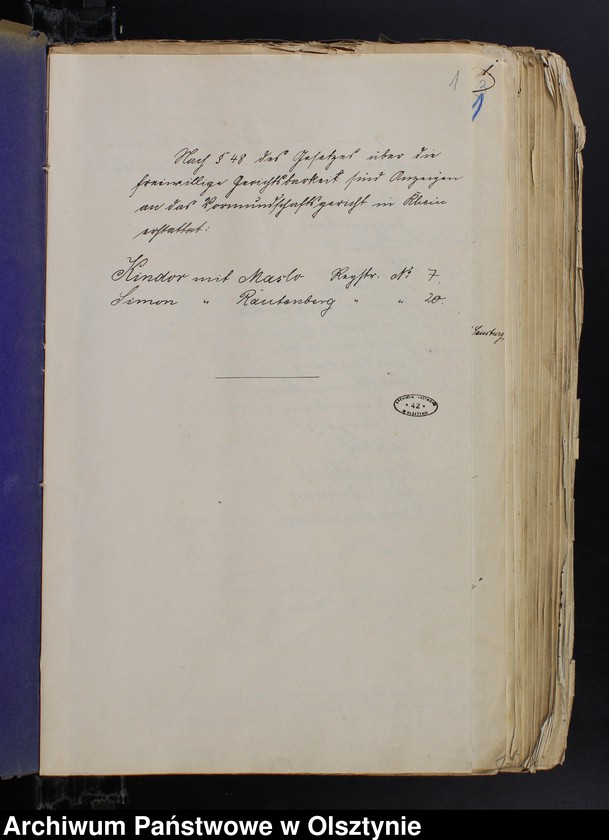 1
2
Nach § 48 des Gesetzes über die
freiwillige Gerichtsbarkeit sind Anzeigen
an das Vormundschaftsgericht in Rhein
erstattet:
Kindor mit Maslo Regstr. № 7.
Simon " Rautenberg " " 20.
Sensburg
• 42 •
Archiwum Państwowe w Olsztynie